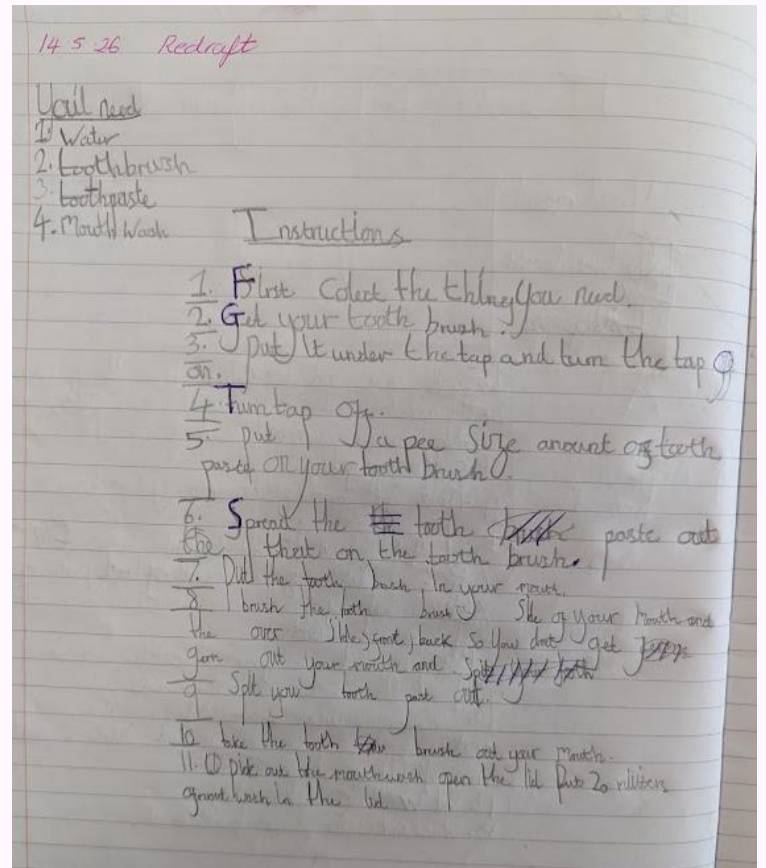 14 5 26 Redraft
You'll need
1. Water
2. toothbrush
3. toothpaste
4. Mouth Wash
Instructions
1. First Colect the thing you need.
2. Get your tooth brush.
3. put It under the tap and turn the tap
on.
4 Turn tap off.
5. put a pee Size amount of tooth
on your tooth brush.
6. Spread the tooth paste out
the that on the tooth brush.
7. Put the tooth bush In your mouth.
8 brush the tooth brush Side of your Mouth and
the over Side, front, back so you dont get
germ out your mouth and Spit
9 Spit your tooth past out.
10 take the tooth brush out your Mouth.
11. pick out the mouthwash open the lid Put 20
wash In the lid